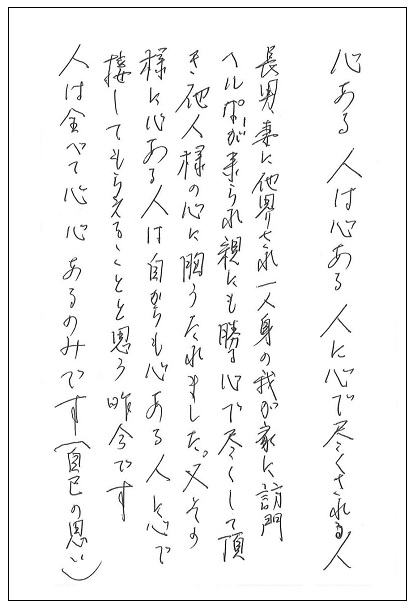 心ある人は心ある人に心で尽くされる人
長男、妻に他界され一人身の我が家に訪問
ヘルパーが来られ親にも勝る心で尽くして頂
き他人様の心に胸うたれました。又その
様に心ある人は自からも心ある人に心で
接してもらえることと思う昨今です
人は全べて心心あるのみです(自己の思い)